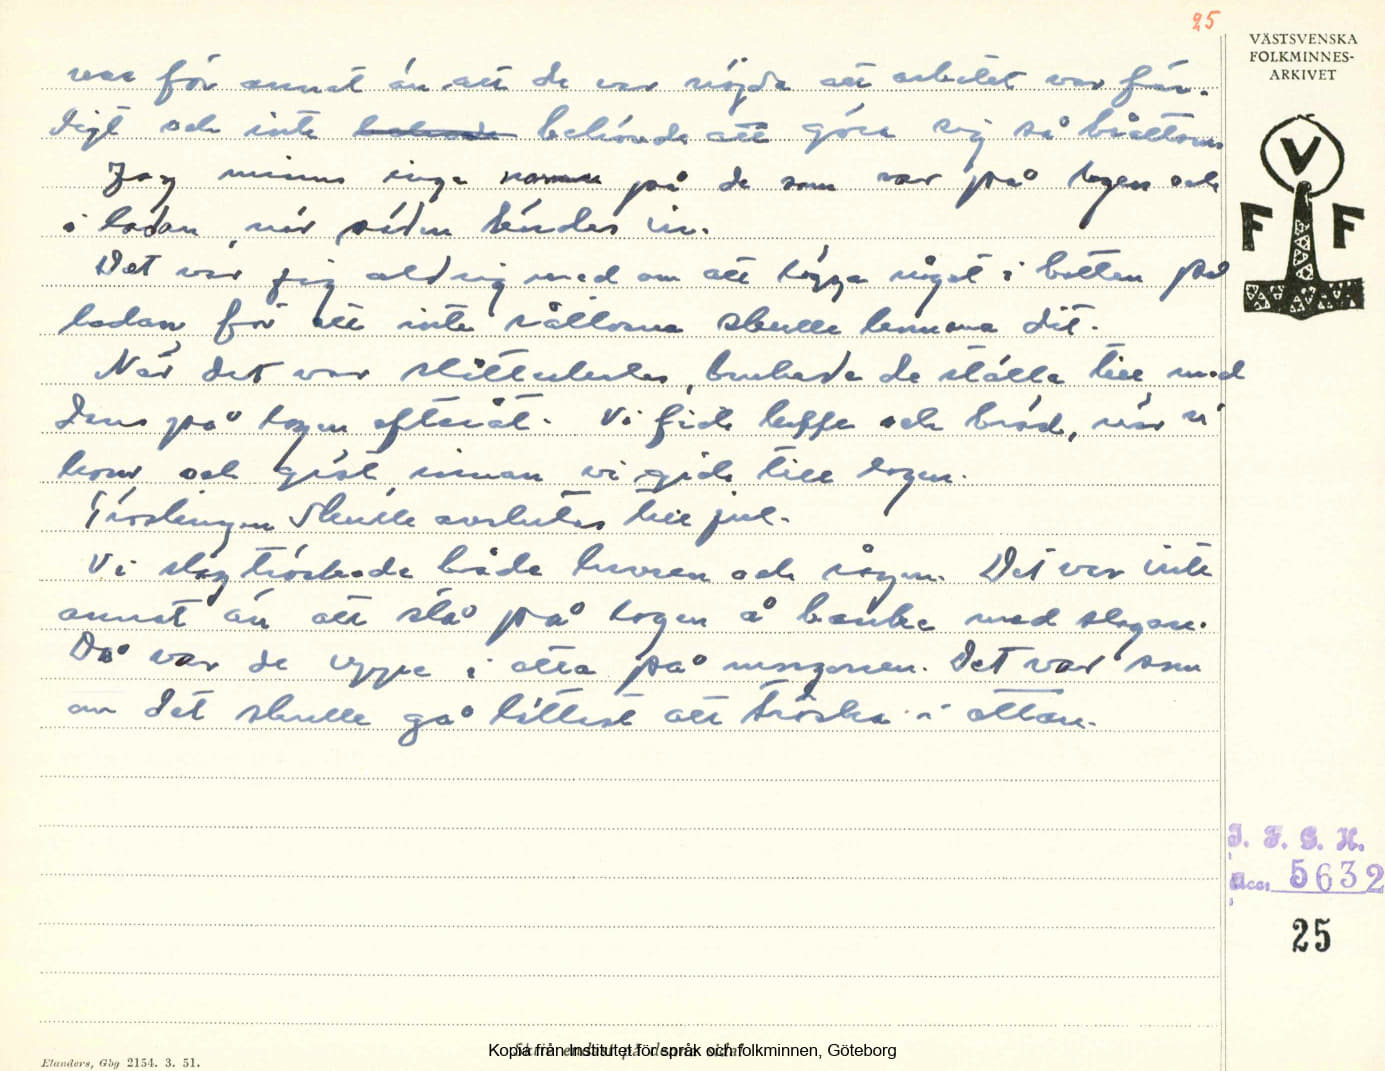 25
VÄSTSVENSKA
FOLKMINNES-
ARKIVET
V
F F
var för annat än att de var nöjda att arbetet var fär-
digt och inte behövde att göra sig så bråttom
Jag minns inga namn på de som var på logen och
i ladan, när säden kördes in.
Det var jag aldrig med om att lägga något i botten på
ladan för att inte råttorna skulle komma dit.
När det var slutt, brukade de ställa till med
dans på logen efteråt. Vi fick kaffe och bröd, när vi
kom och gröt innan vi gick till logen.
Tröskningen skulle avslutas till jul.
Vi slagtröskade både havren och rågen. Det var inte
annat än att stå på logen å banka med slagan.
Då var de uppe i otta på morgonen. Det var som
om det skulle gå lättast att tröska i ottan.
I. F. G. H.
Acc. 5632
25
Elanders, Gbg 2154. 3. 51.
Kopia från Institutet för språk och folkminnen, Göteborg